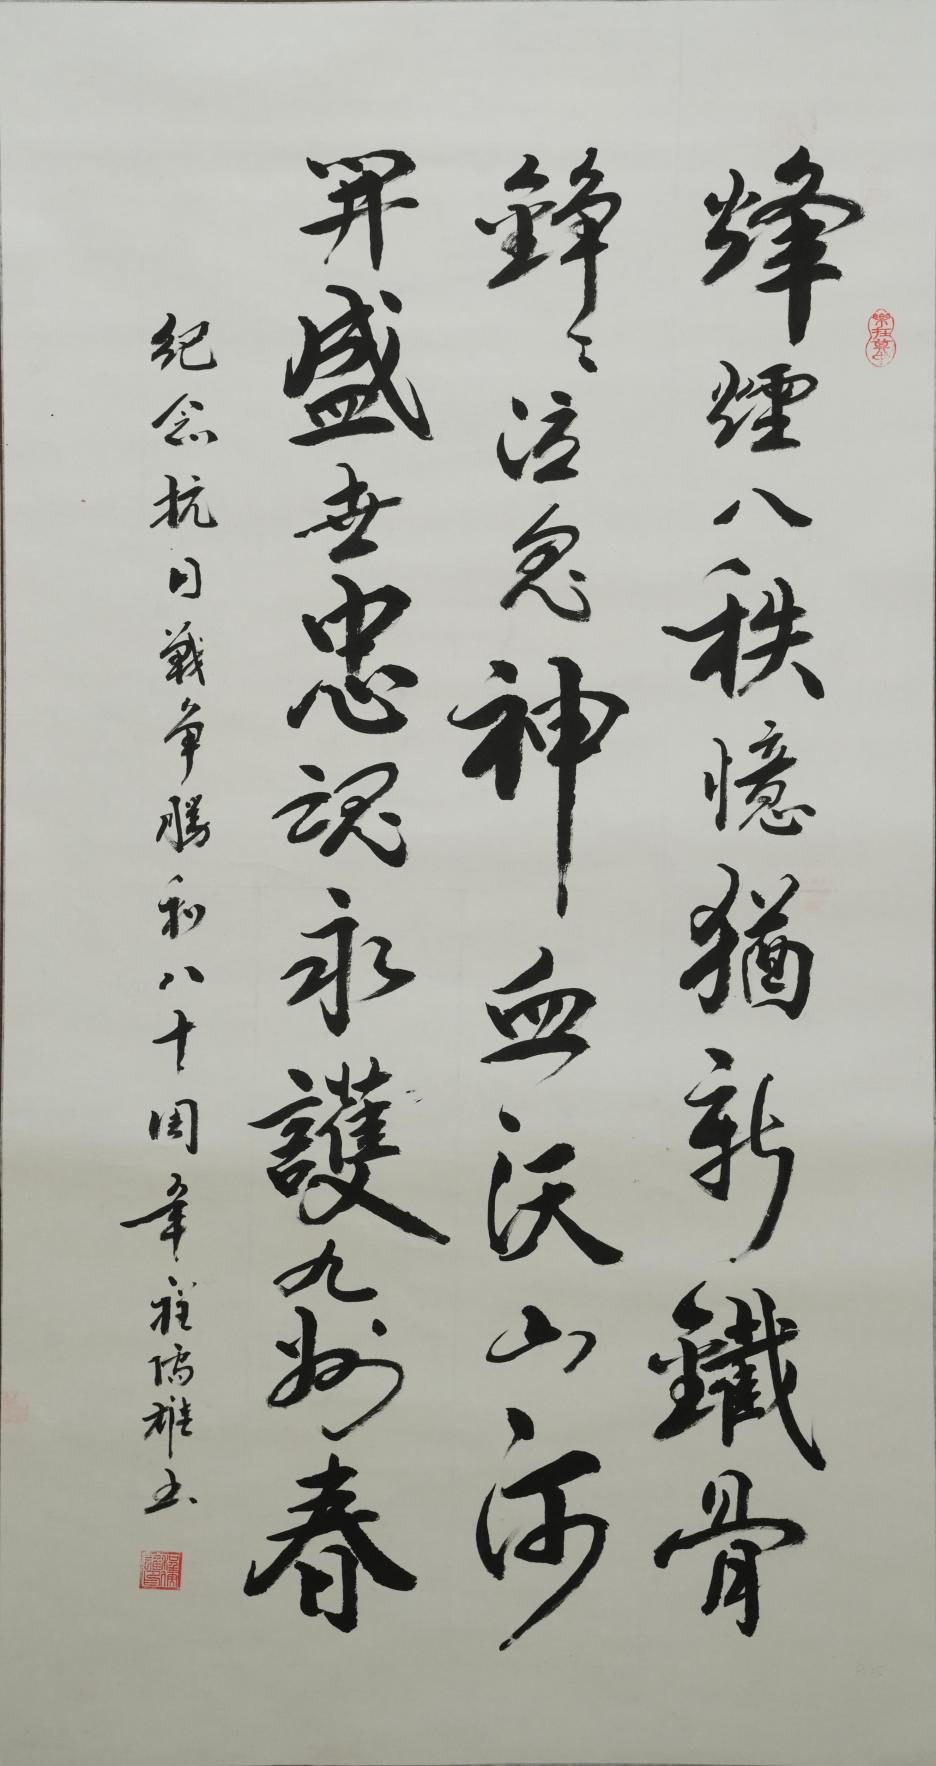 烽煙八秩憶猶新鐵骨
錚々泣鬼神血沃山河
開盛世忠魂永護九州春
紀念抗日戰爭勝利八十周年程儒雄书
樂在其中